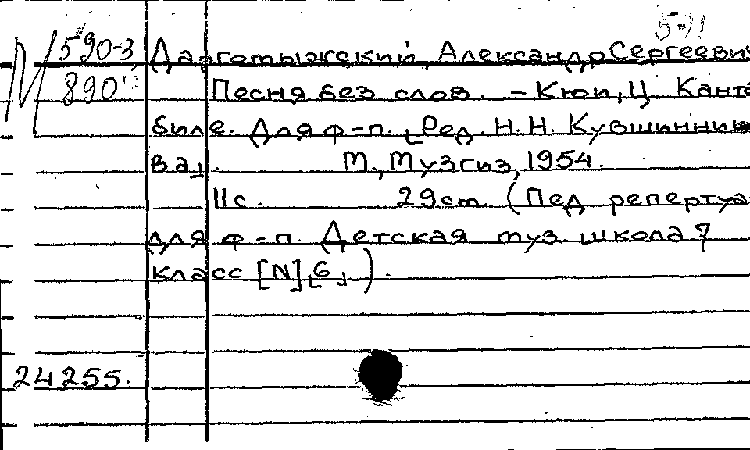 5-11
М 590-3 Даргомыжский, Александр Сергеевич
890 Песня без слов. – Кюи, Ц. Канта
биле. Для ф=п. [Ред. Н.Н. Кувшинник
ва]. М., Музгиз, 1954.
11с. 29cm. (Пед репертуа
для ф=п. Детская муз. школа 7
класс [N] [6] ).
24255.